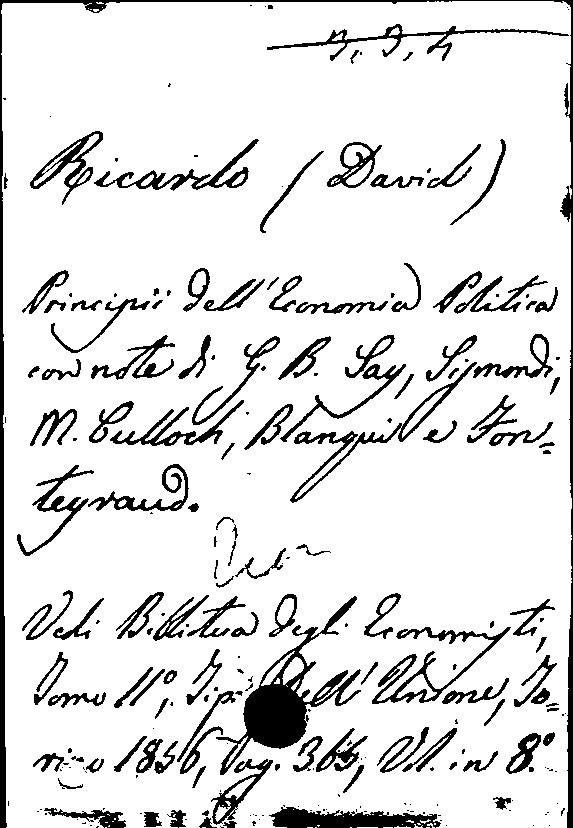 3, 3, 4
Ricardo (David)
Principii dell'Economia Politica
con note di G. B. Say, Sismondi,
M. Culloch, Blanqui e Fon=
teyraud.
Vedi Biblioteca degli Economisti,
Tomo 11°, Tip. Dell'Unione, To=
rino 1856, Pag. 365, Vol. in 8°